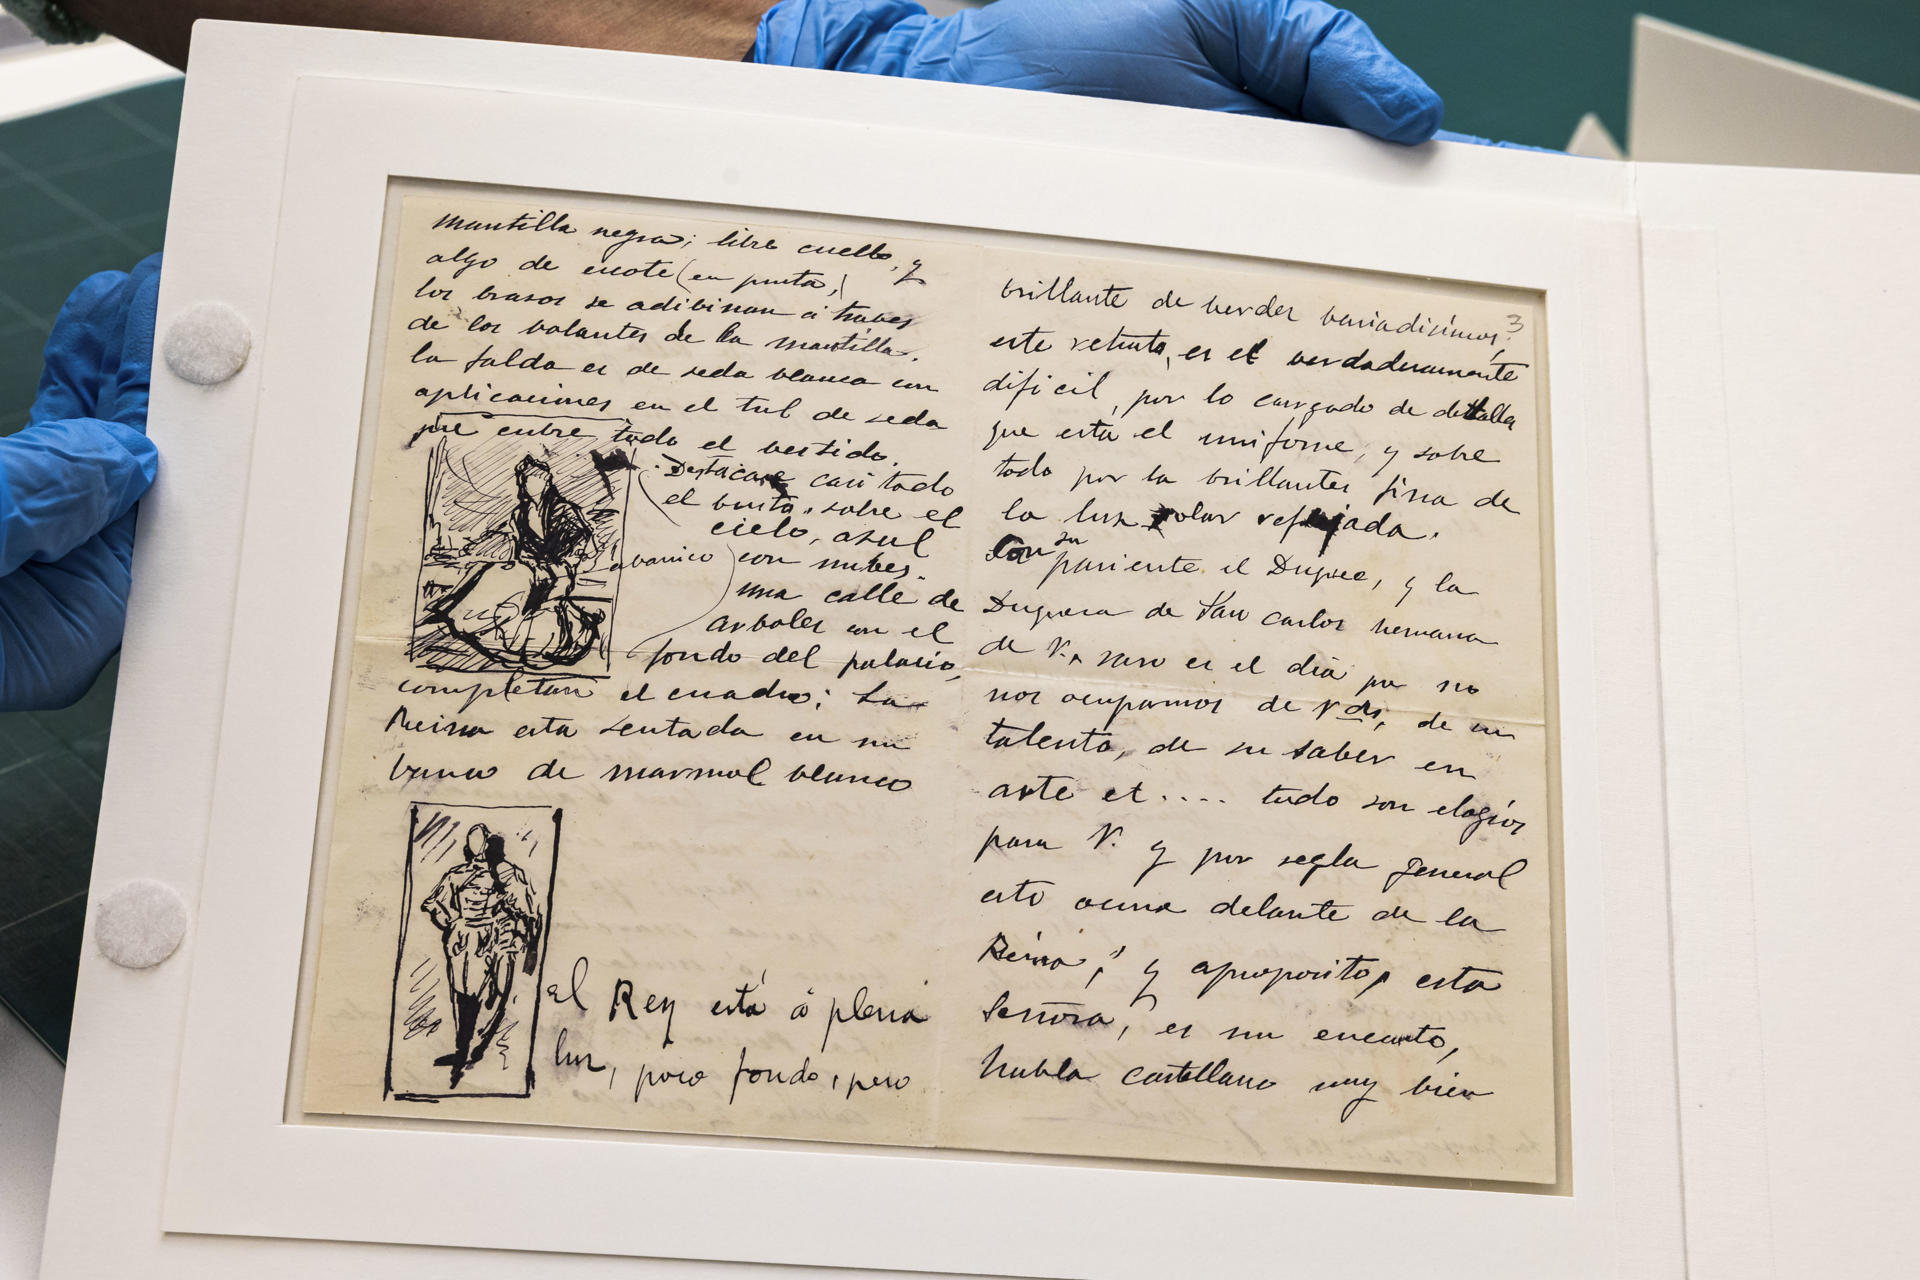 mantilla negra; libre cuello, y
algo de escote (en punta,)
los brasos se adibinan á traves
de los bolantes de la mantilla.
la falda es de seda blanca con
aplicaciones en el tul de seda
que cubre todo el bestido.
Destacase casi todo
el busto, sobre el
cielo, asul
abanico
con nubes.
una calle de
arboles con el
fondo del palacio,
completan el cuadro; La
Reina esta sentada en un
banco de marmol blanco
el Rey está á plena
luz, poco fondo, pero
3
brillante de verdes bariadisimos,
este retrato, es el verdaderamente
dificil, por lo cargado de detalle
que esta el uniforme, y sobre
todo por la brillantes fisica de
la luz solar reflejada.
Con su pariente el Duque, y la
Duquesa de San Carlos hermana
de V., raro es el dia que no
nos ocupamos de Vds, de su
talento, de su saber en
arte et.... todo son elogios
para V. y por regla general
esto ocurre delante de la
Reina, y aproposito, esta
Señora, es un encanto,
habla castellano muy bien